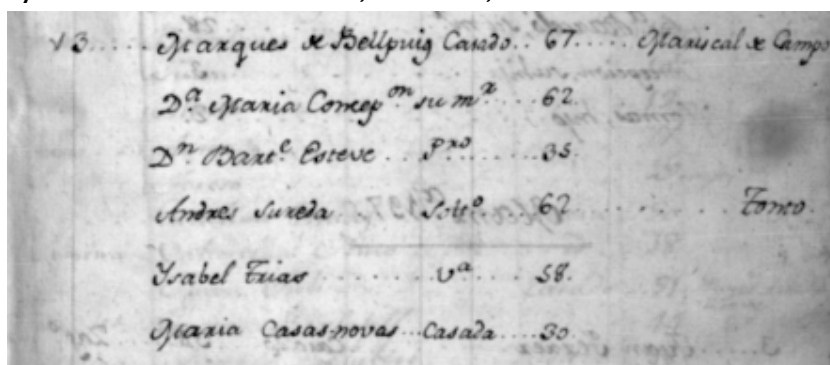 13..... Marques de Bellpuig Casado.. 67..... Mariscal de Campo
Dª Maria Concepon su mr.... 62.
Dn Barte Esteve.. Pro....... 35.
Andres Sureda Solto.. 62....... Tonto.
Ysabel Trias....... va.... 58.
Maria Casas-novas... Casada.... 30